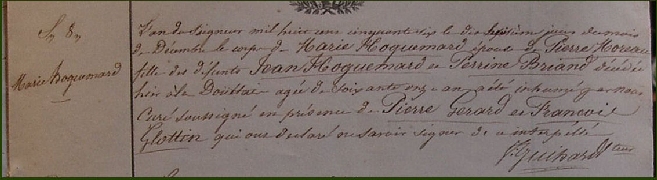 S. 8.
Marie Hoquemard
L'an du Seigneur mil huit cent cinquante six le dix septième jour du mois
de Décembre le corps de Marie Hoquemard épouse de Pierre Moreau
fille des défunts Jean Hoquemard et Perrine Briand décédée
hier à la agée de soixante onze an a été inhumé par nous
Curé soussigné en présence de Pierre Gerard et François
Glottin qui ont déclaré ne savoir signer de ce interpellé
Guihard